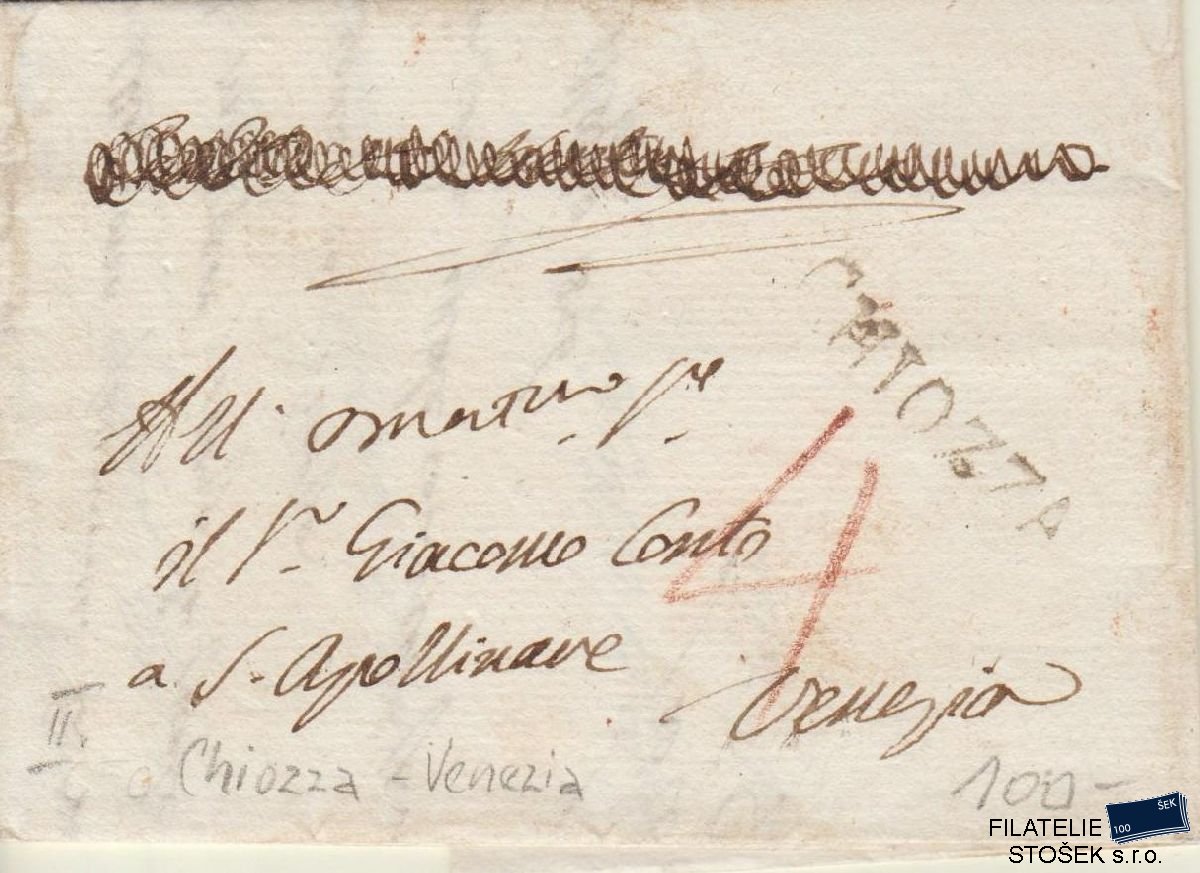 CHIOZZA
All
il Sr. Giacomo Conto
4
a S. Apollinare
Venezia
II
Chiozza - Venezia
100-
100 ŠEK
FILATELIE
STOŠEK s.r.o.